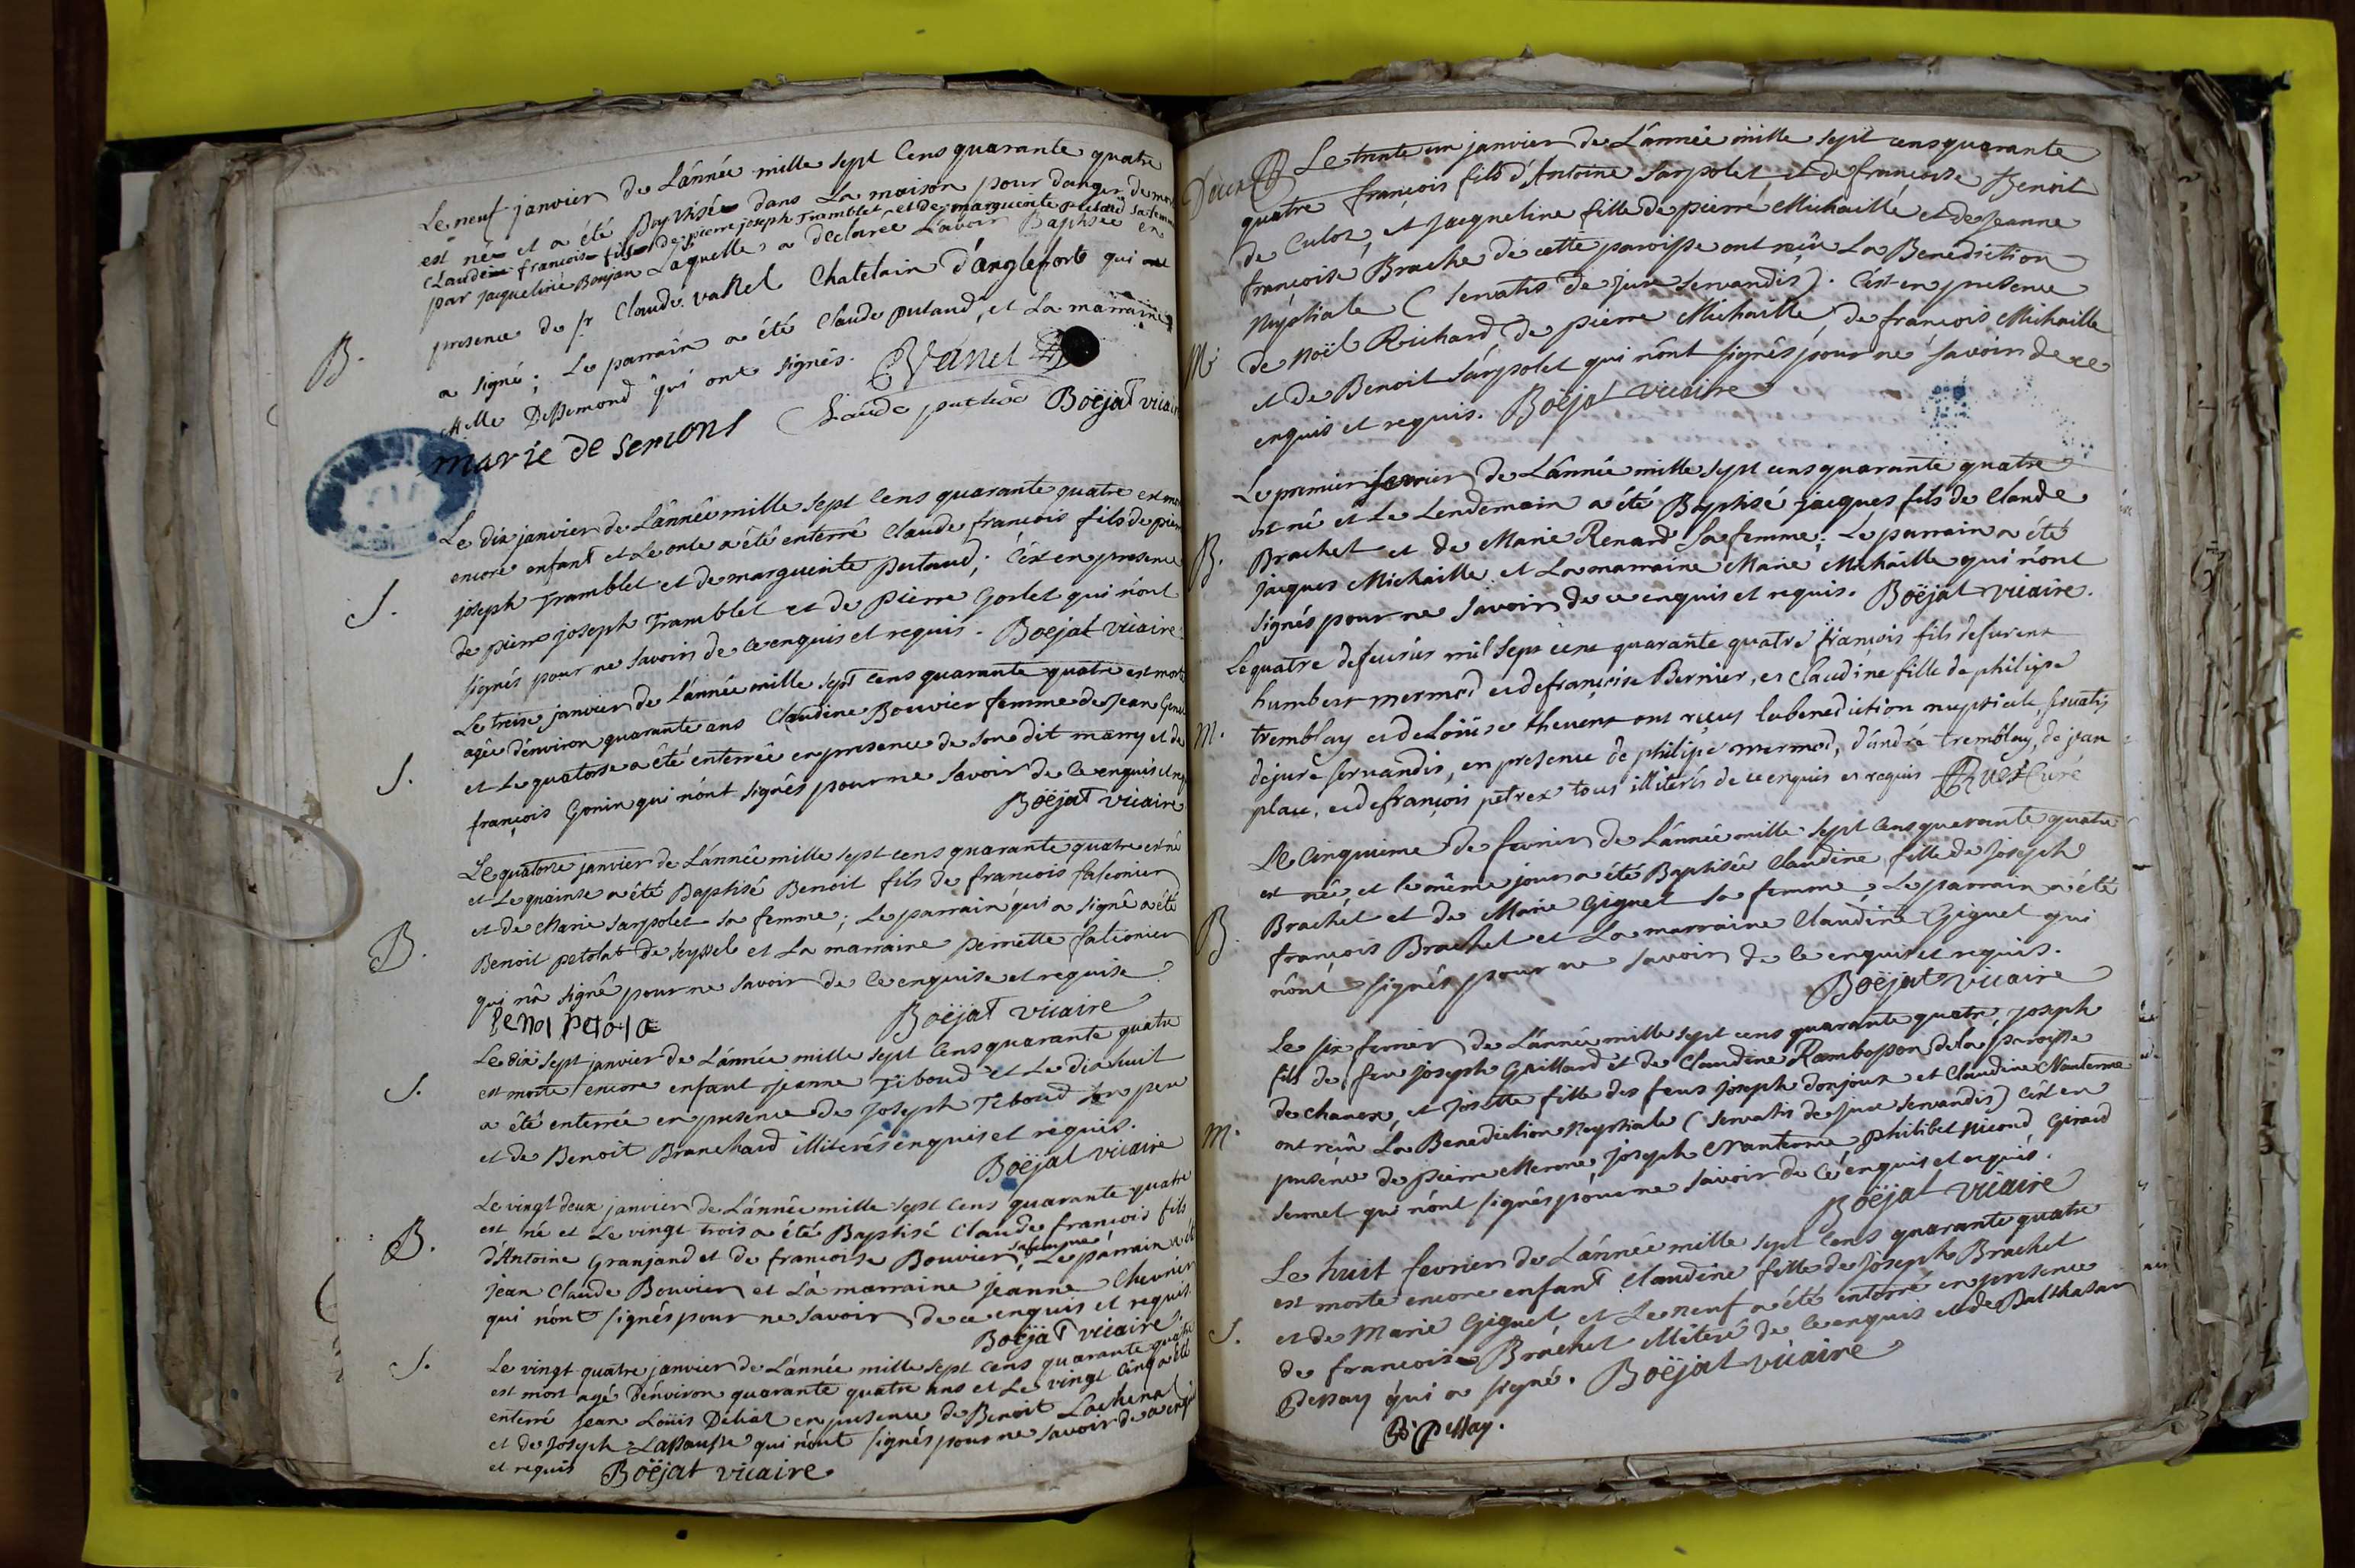 Le neuf janvier de L'année mille sept Cens quarante quatre
est né et a été Baptisé dans La maison pour danger de mort
Claude francois fils de pierre joseph Tramblet et de marguerite putaud sa femme
par jaqueline Bonjan Laquelle a declaree L'avoir Baptisée en
presence de sr Claude Vanel Chatelain d'anglefort qui
B.
a signé; Le parrain a été Claude putaud, et La marraine
Melle Dessemond qui ont signés. CVanel
marie de semons Claude putaud Boëjat vicaire
Le dix janvier de L'année mille sept Cens quarante quatre est mort
encore enfant et Le onse a été enterré Claude francois fils de pierre
S.
joseph Tramblet et de marguerite putaud; C'est en presence
de pierre joseph Tramblet et de Pierre Gorlet qui n'ont
signés pour ne savoir de ce enquis et requis. Boëjat vicaire
Le treise janvier de L'année mille sept Cens quarante quatre est morte
agée d'environ quarante ans Claudine Bouvier femme de Jean
S.
et Le quatorse a été enterrée en presence de son dit marry et de
françois Gonin qui n'ont signés pour ne savoir de ce enquis et
Boëjat vicaire
Le quatorse janvier de L'année mille sept cens quarante quatre est né
et Le quinse a été Baptisé Benoit fils de francois falconier
et de Marie sarpolet sa femme; Le parrain qui a signé a été
B.
Benoit petolat de seyssel et La marraine pernette falconier
qui n'a signé pour ne savoir de ce enquise et requise
Boëjat vicaire
Le dix sept janvier de L'année mille sept Cens quarante quatre
S.
est morte encore enfant jeanne Tiboud et Le dix huit
a été enterrée en presence de Joseph Tiboud son pere
et de Benoit Branchard illiterés enquis et requis.
Boëjat vicaire
Le vingt deux janvier de L'année mille sept Cens quarante quatre
est né et Le vingt trois a été Baptisé Claude francois fils
B.
d'Antoine Granjand et de francoise Bouvier sa femme; Le parrain a été
jean Claude Bouvier et La marraine jeanne Chevrier
qui n'ont signés pour ne savoir de ce enquis et requis.
Boëjat vicaire.
S.
Le vingt quatre janvier de L'année mille sept Cens quarante quatre
est mort agé d'environ quarante quatre ans et Le vingt Cinq a été
enterré Jean Loüis Deliat en presence de Benoit Lachenal
et de Joseph Lapausse qui n'ont signés pour ne savoir de ce
et requis Boëjat vicaire
Le trente un janvier de L'année mille sept cens quarante
quatre françois fils d'Antoine Sarpolet et de francoise Benoit
de Culoz, et Jacqueline fille de pierre Michaille et de Jeanne
francoise Brache de cette paroisse ont reçu La Benediction
Nuptiale (Servatis de Jure Servandis). C'est en presence
M.
de Noël Richard, de pierre Michaille, de francois Michaille
et de Benoit Sarpolet qui n'ont signés pour ne savoir de ce
enquis et requis. Boëjat vicaire
Le premier fevrier de L'année mille sept cens quarante quatre
est né et Le Lendemain a été Baptisé jacques fils de Claude
B.
Brachet et de Marie Renard sa femme; Le parrain a été
Jacques Michaille et La marraine Marie Michaille qui n'ont
signés pour ne savoir de ce enquis et requis. Boëjat vicaire.
Le quatre de fevrier mil sept cent quarante quatre françois fils de
humbert mermod et de françoise Bernier, et Claudine fille de philipe
M.
tremblay et de Loüise thevent ont reçus la benediction nuptiale, servatis
de jure servandis, en presence de philipe mermod, d'andré tremblay, de jean
place, et de françois petrex tous illiterés de ce enquis et requis Curé
Le Cinquieme de fevrier de L'année mille sept Cens quarante quatre
est née, et le même jour a été Baptisée Claudine fille de Joseph
B.
Brachet et de Marie Giguet sa femme; Le parrain a été
françois Brachet et La marraine Claudine Giguet qui
n'ont signés pour ne savoir de ce enquis et requis.
Boëjat vicaire
Le six fevrier de L'année mille sept cens quarante quatre, Joseph
fils de feu joseph Gaillard et de Claudine Rambosson de la paroisse
de chanex, et Josette fille des feus joseph donjoux et Claudine Nanterme
M.
ont reçu La Benediction Nuptiale (Servatis de Jure Servandis) C'est en
presence de pierre Merme, joseph Nanterme, philibet Nicoud Giraud
Sennet qui n'ont signés pour ne savoir de ce enquis et requis.
Boëjat vicaire
Le huit fevrier de L'année mille sept Cens quarante quatre
est morte encore enfant Claudine fille de Joseph Brachet
S.
et de Marie Giguet, et Le neuf a été enterré en presence
de francois Brachet illiteré de ce enquis et de Balthasar
Dessay qui a signé. Boëjat vicaire
B. Dessay.